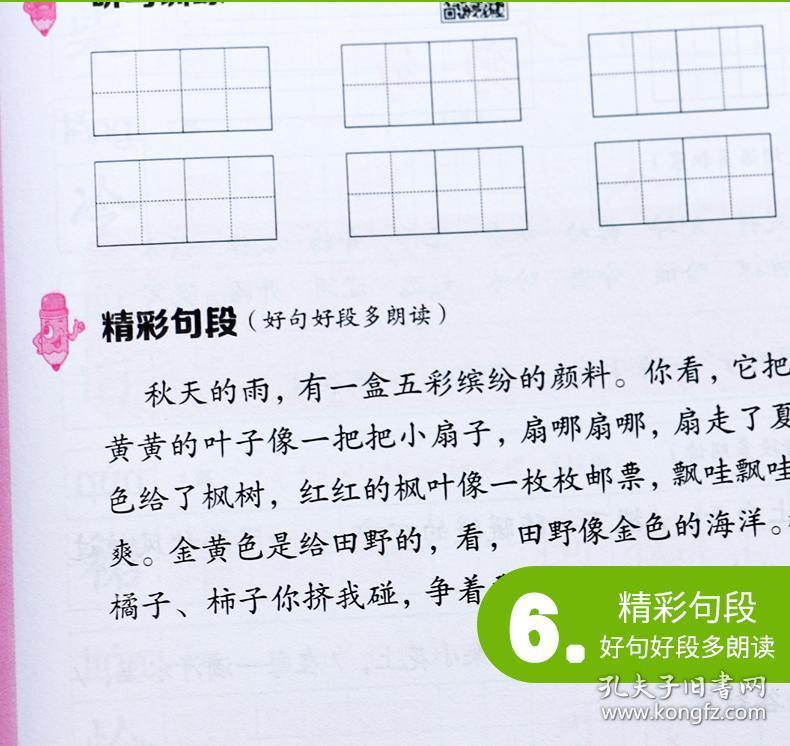 精彩句段（好句好段多朗读）
秋天的雨，有一盒五彩缤纷的颜料。你看，它把
黄黄的叶子像一把把小扇子，扇哪扇哪，扇走了夏
色给了枫树，红红的枫叶像一枚枚邮票，飘哇飘哇
爽。金黄色是给田野的，看，田野像金色的海洋。
橘子、柿子你挤我碰，争着
6.
精彩句段
好句好段多朗读
孔夫子旧书网
www.kongfz.com